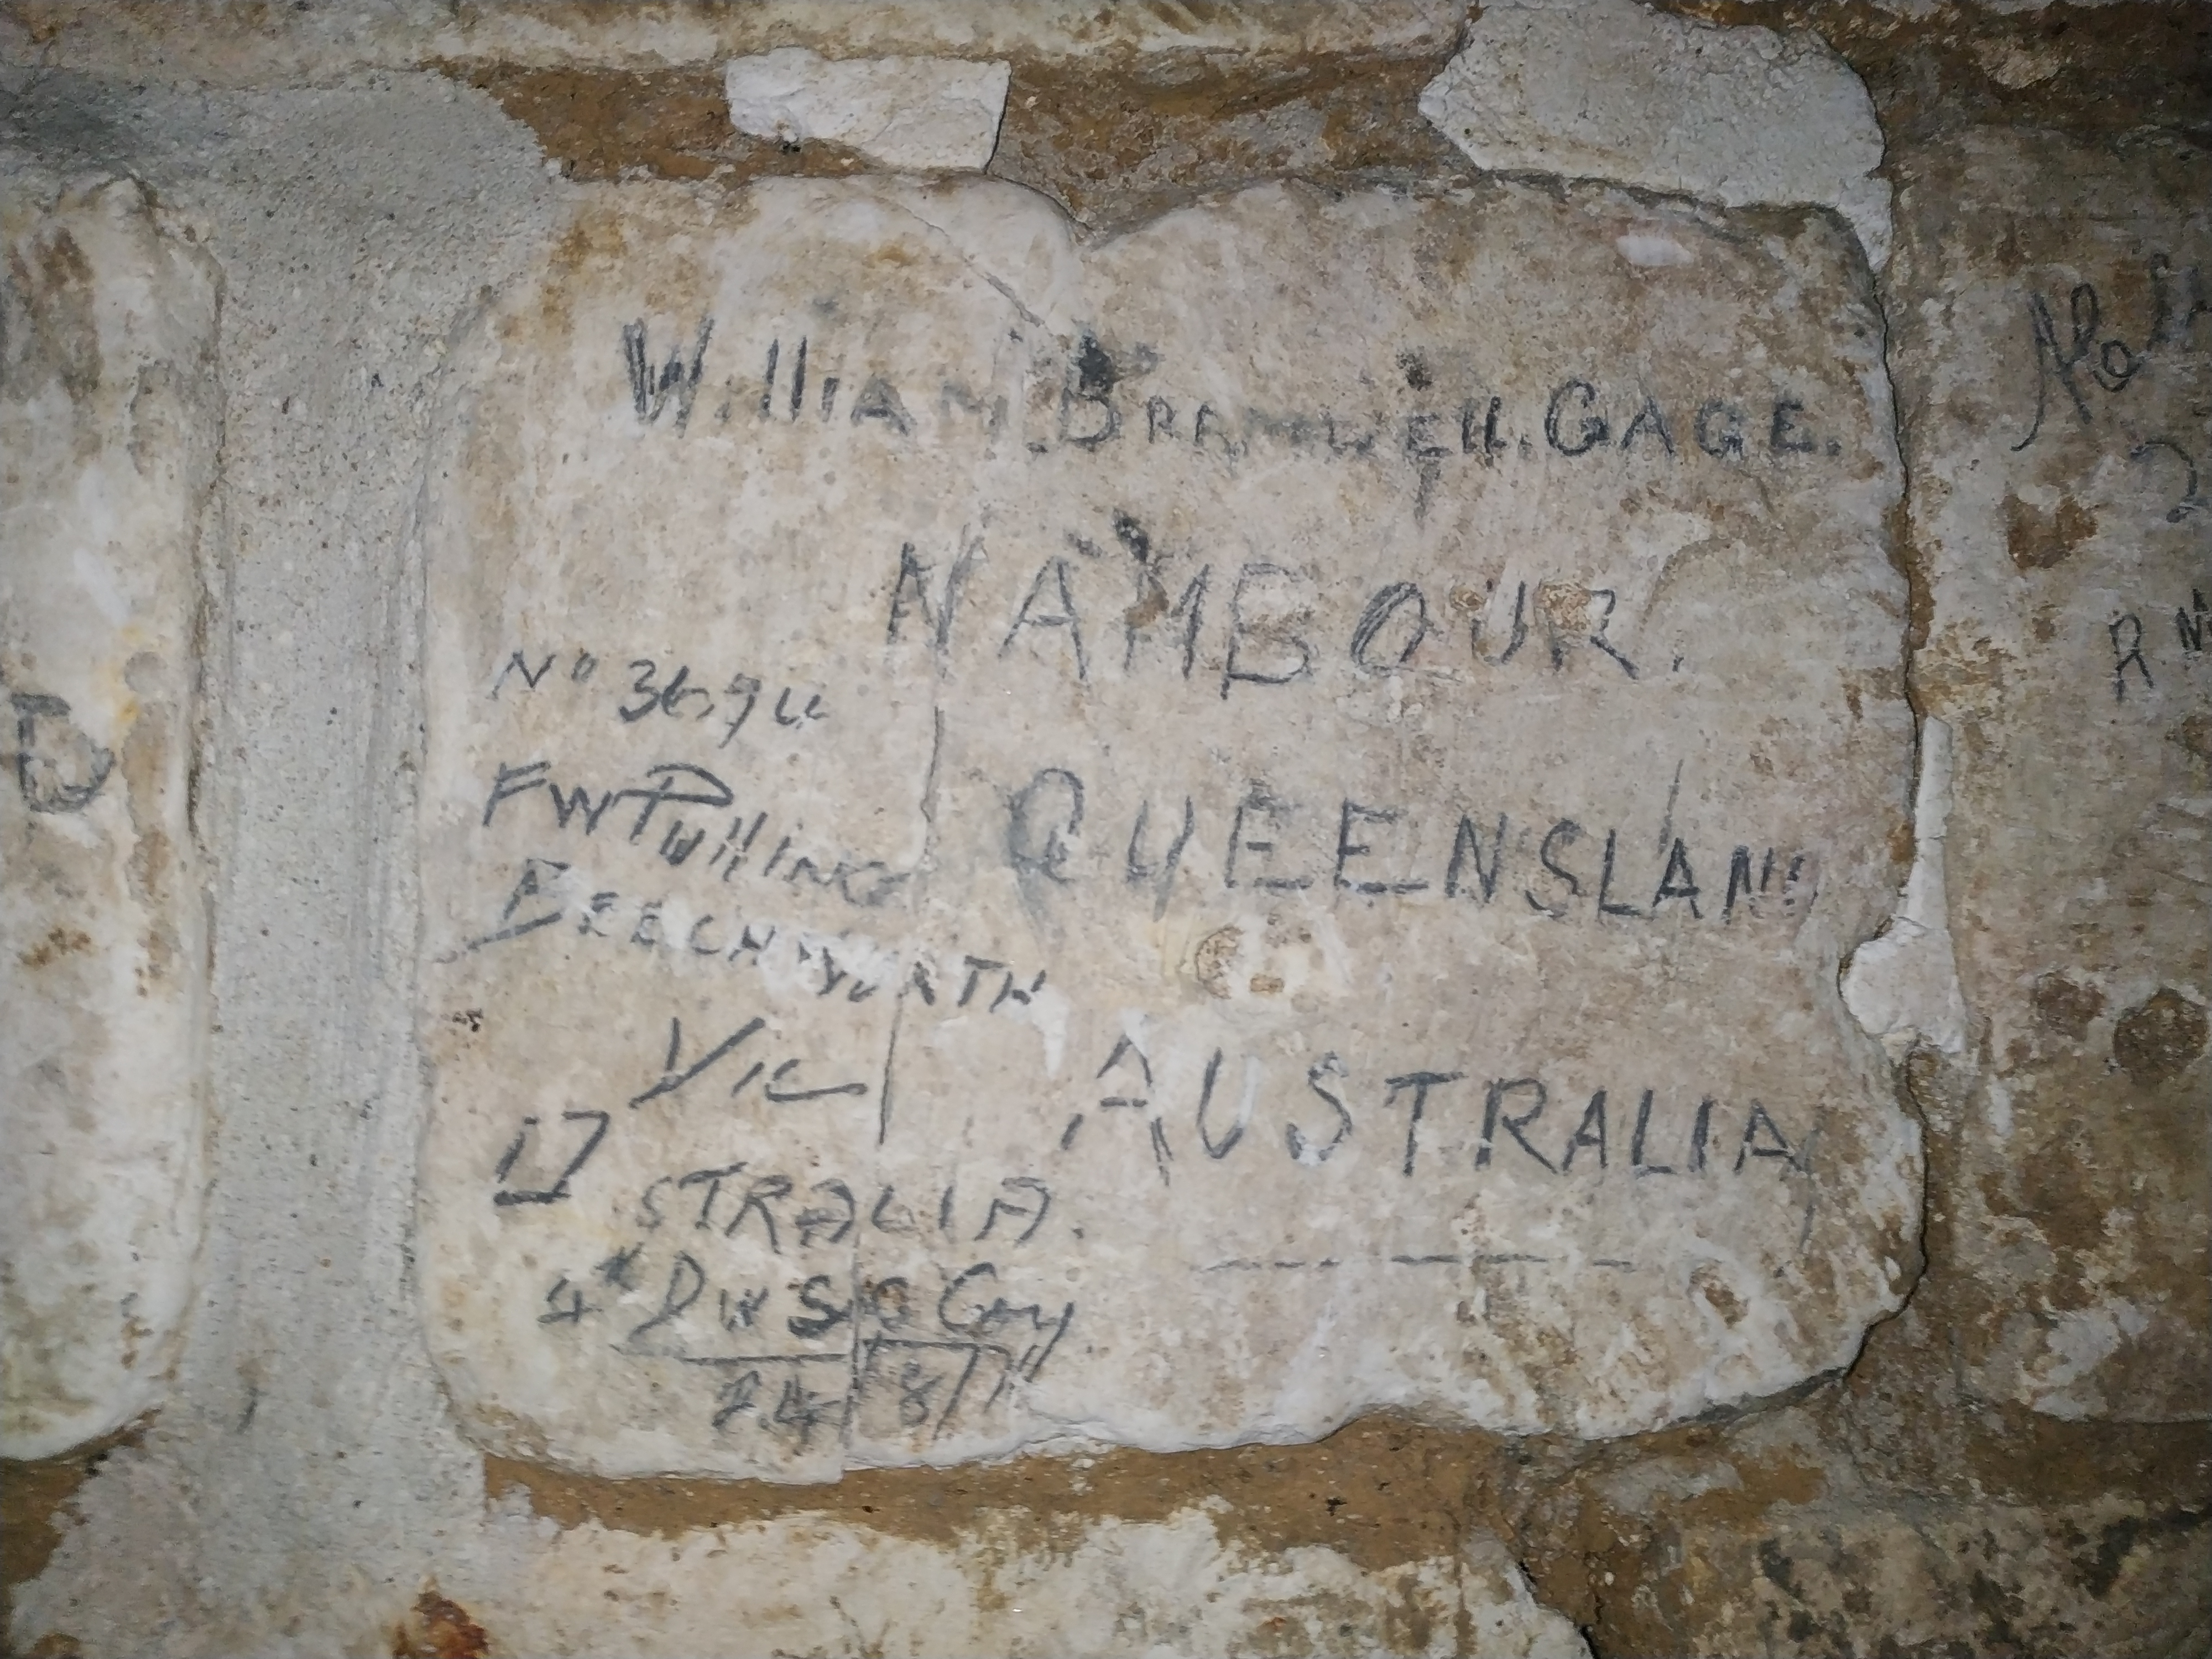 William. Bramwell. GAGE.
NAMBOUR.
QUEENSLAND
AUSTRALIA
No
FW Pulling
BEECHWORTH
Vic
STRALIA.
4th
24/8/17
R